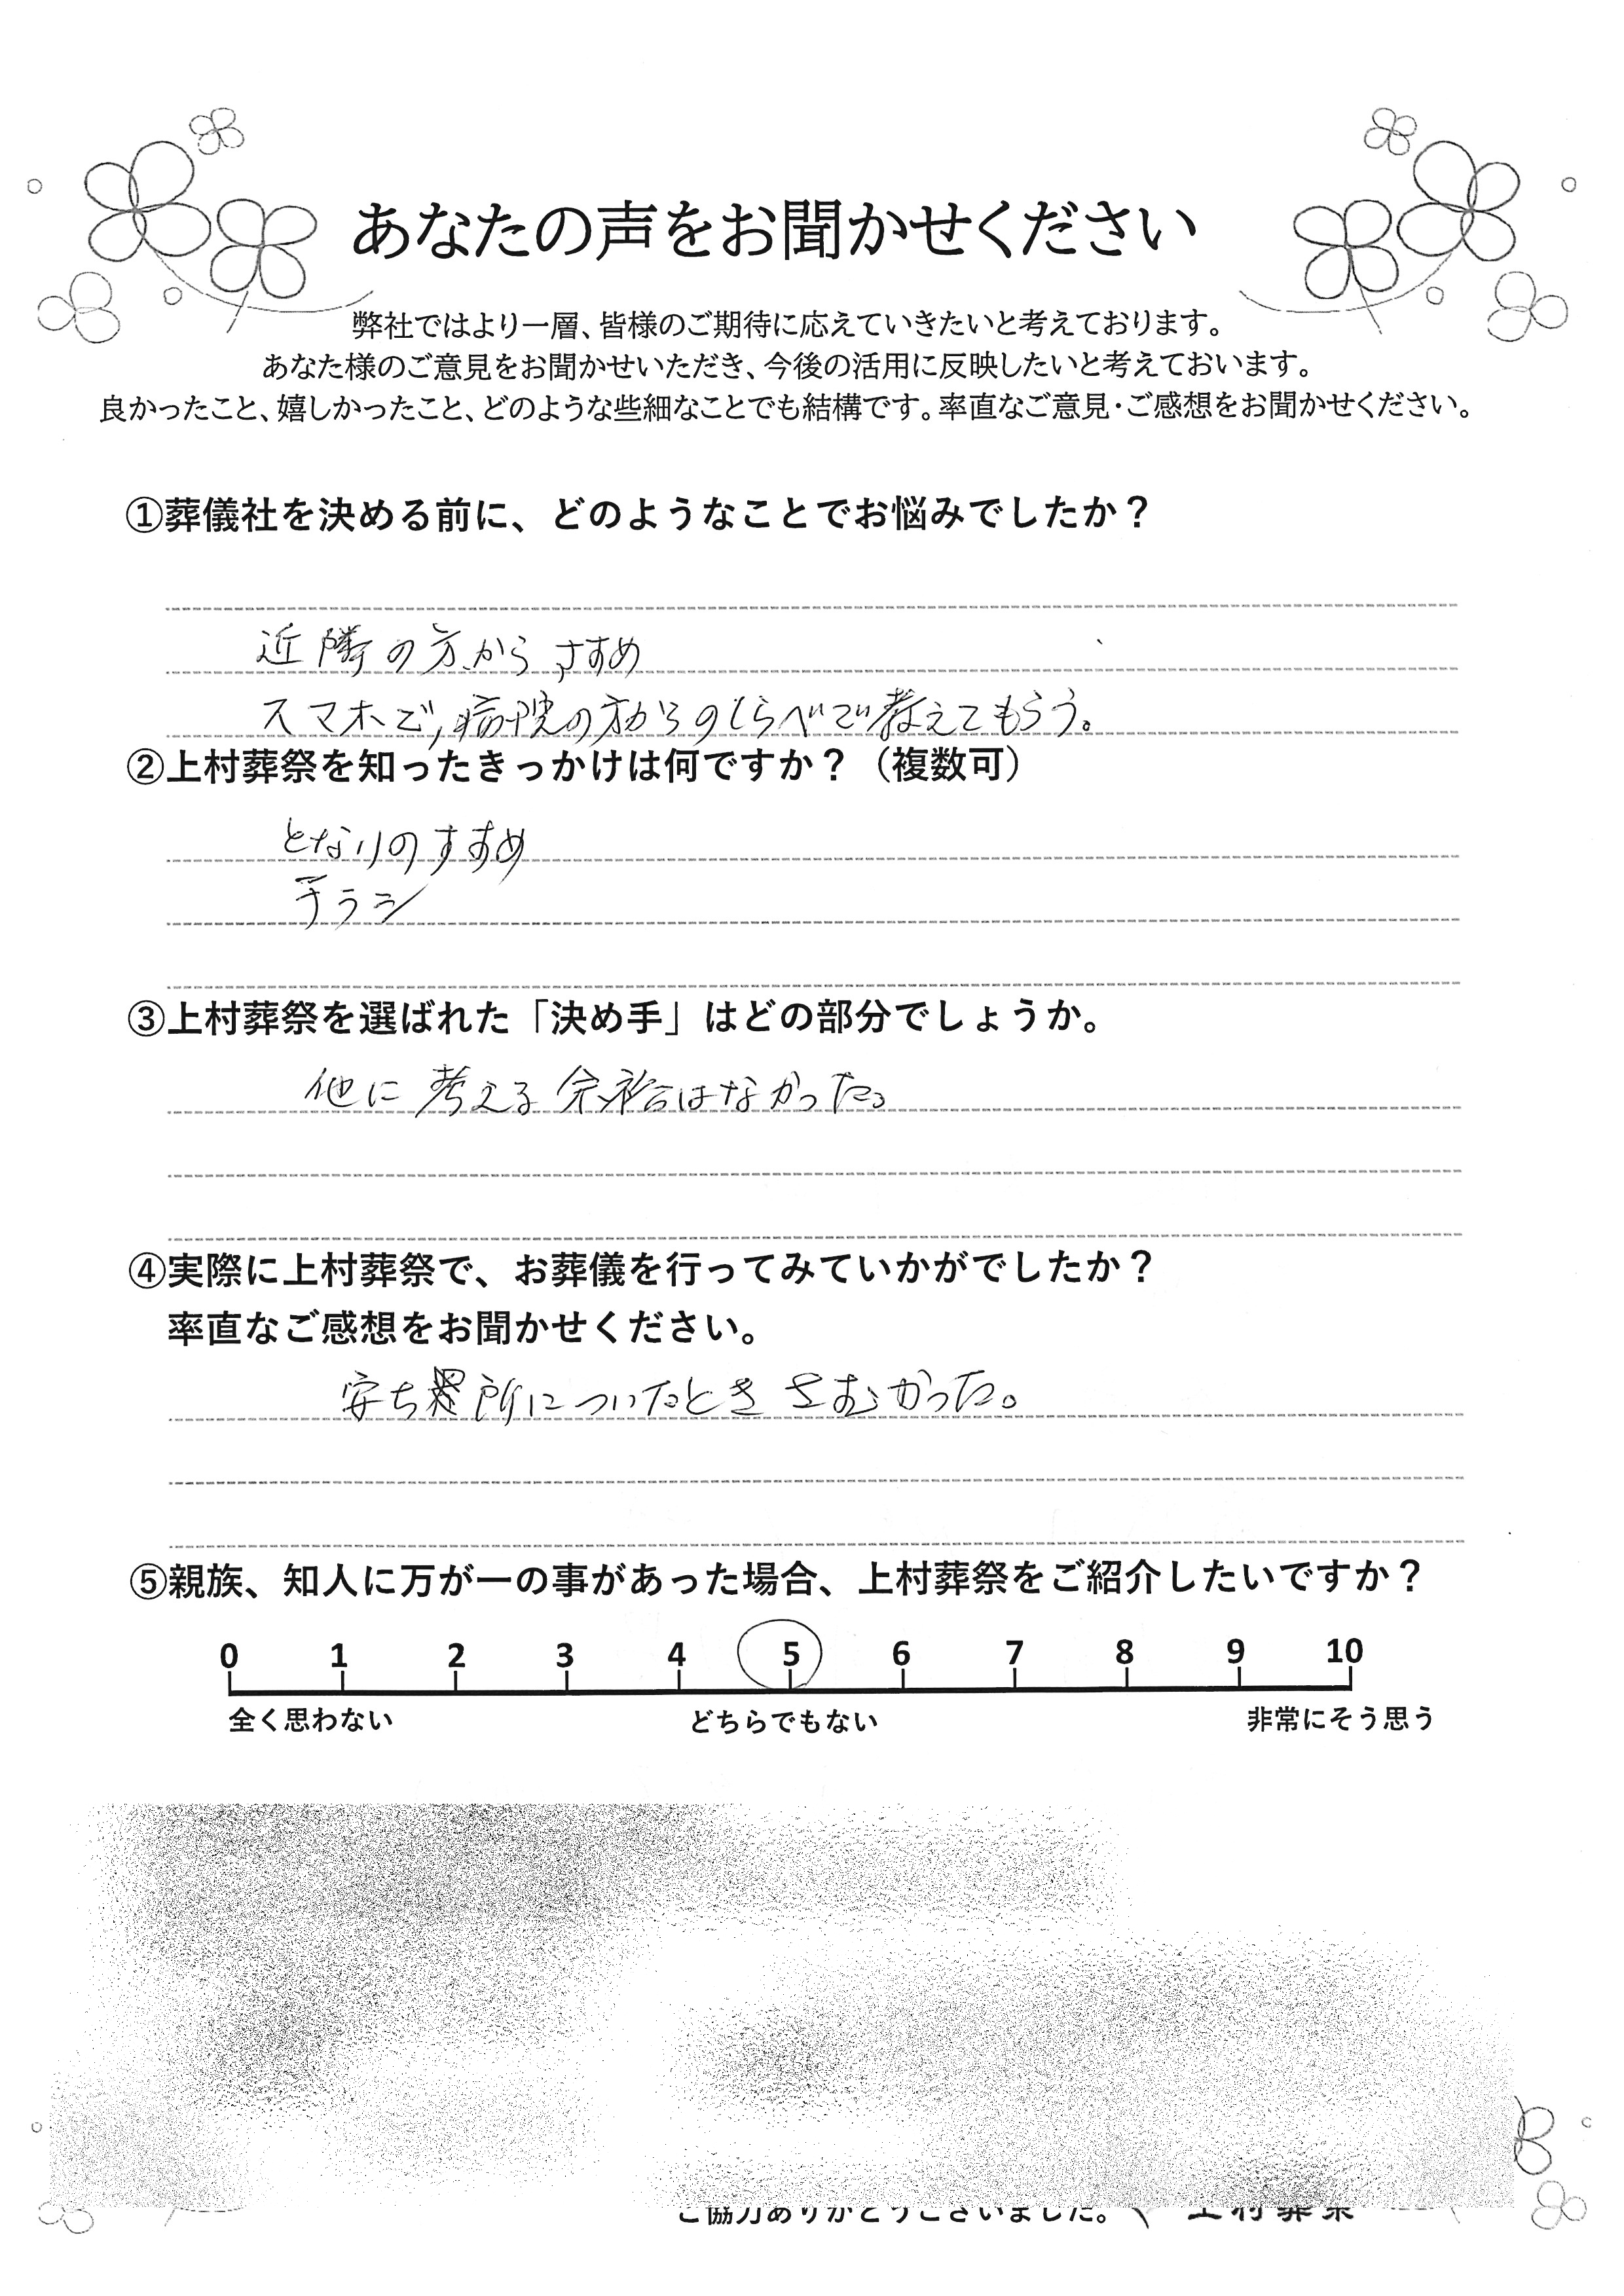 あなたの声をお聞かせください
弊社ではより一層、皆様のご期待に応えていきたいと考えております。
あなた様のご意見をお聞かせいただき、今後の活用に反映したいと考えておいます。
良かったこと、嬉しかったこと、どのような些細なことでも結構です。率直なご意見・ご感想をお聞かせください。
①葬儀社を決める前に、どのようなことでお悩みでしたか？
近隣の方から すすめ
スマホで,病院の方からのしらべで教えてもらう。
②上村葬祭を知ったきっかけは何ですか？（複数可）
となりのすすめ
チラシ
③上村葬祭を選ばれた「決め手」はどの部分でしょうか。
他に考える余裕はなかった。
④実際に上村葬祭で、お葬儀を行ってみていかがでしたか？
率直なご感想をお聞かせください。
安ち所についたとき さむかった。
⑤親族、知人に万が一の事があった場合、上村葬祭をご紹介したいですか？
0 1 2 3 4 5 6 7 8 9 10
全く思わない どちらでもない 非常にそう思う
ご協力ありがとうございました。 上村葬祭